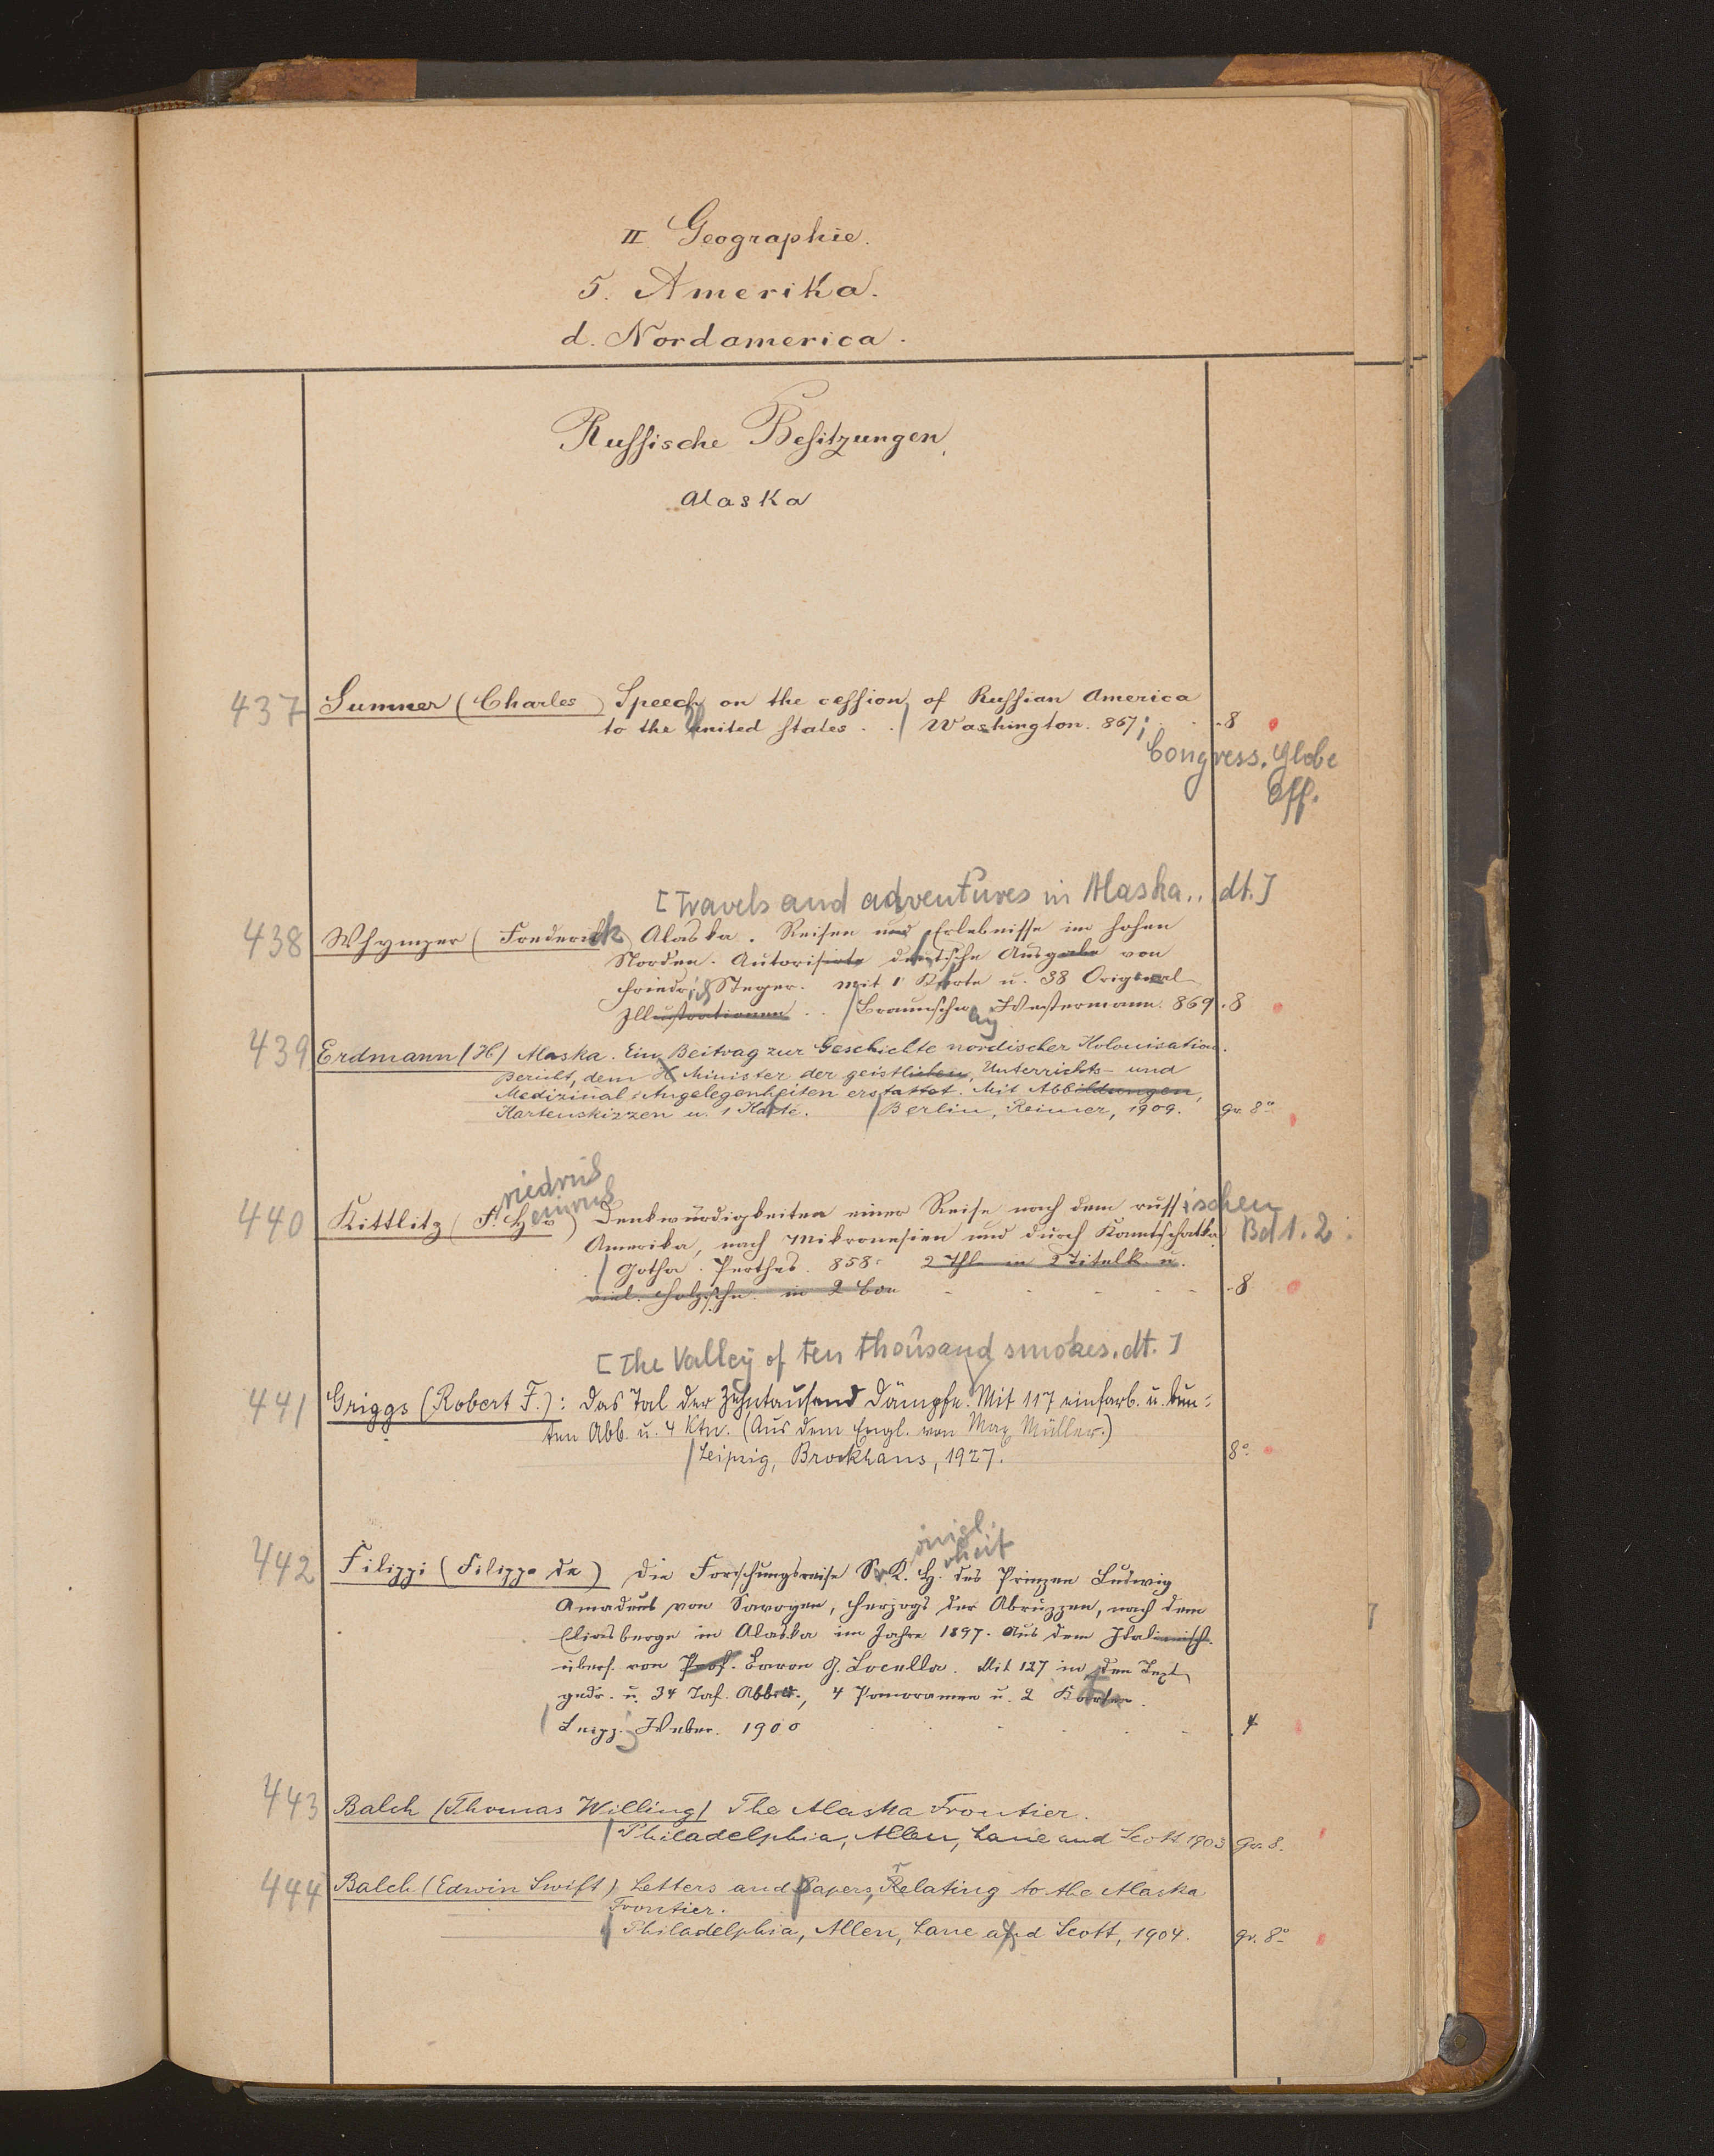 II. Geographie.
5. Amerika.
d. Nordamerica.
Russische Besitzungen,
Alaska
437 Sumner (Charles) Speech on the cession of Russian America
to the united States . . / Washington. 867; . . 8
Congress. Globe
Off.
[Travels and adventures in Alaska.. dt.]
438 Whymper (Frederick) Alaska. Reisen und Erlebnisse im hohen
Norden. Autorisirte deutsche Ausgabe von
Friedrich Steger. Mit 1 Karte u. 38 Original
Illustrationen . . / Braunschwg Westermann. 869 . 8
439 Erdmann (H) Alaska. Ein Beitrag zur Geschichte nordischer Kolonisation.
Bericht, dem H Minister der geistlichen, Unterrichts- und
Medizinal-Angelegenheiten erstattet. Mit Abbildungen,
Kartenskizzen u. 1 Karte. / Berlin, Reimer, 1909. gr. 8°
riedrich
einrich
440 Kittlitz (F. H. v) Denkwürdigkeiten einer Reise nach dem russischen
Amerika, nach Mikronesien und durch Kamtschatka. Bd 1. 2.
/ Gotha. Perthes. 858. 2 Thle in 2 Titelk. u.
viel. Holzschn. in 2 Bdn - - - - - 8
[The Valley of ten thousand smokes. dt.]
441 Griggs (Robert F.): Das Tal der Zehntausend Dämpfe. Mit 117 einfarb. u. bun-
ten Abb. u. 4 Ktn. (Aus dem Engl. von Max Müller.)
/ Leipzig, Brockhaus, 1927. 8°
önigl.
oheit
442 Filippi (Filippo de) Die Forschungsreise Sr. K. H. des Prinzen Ludwig
Amadeus von Savoyen, Herzogs der Abruzzen, nach dem
Eliasberge in Alaska im Jahre 1897. Aus dem Italienisch.
übers. von Prof. Baron G. Locella. Mit 127 in den Text
gedr. u. 34 Taf. Abbild., 4 Panoramen u. 2 Karten.
/ Leipz. Weber. 1900 . . . . . 4
443 Balch (Thomas Willing) The Alaska Frontier.
/ Philadelphia, Allen, Lane and Scott 1903 Gr. 8.
444 Balch (Edwin Swift) Letters and Papers, Relating to the Alaska
Frontier.
/ Philadelphia, Allen, Lane and Scott, 1904. gr. 8°